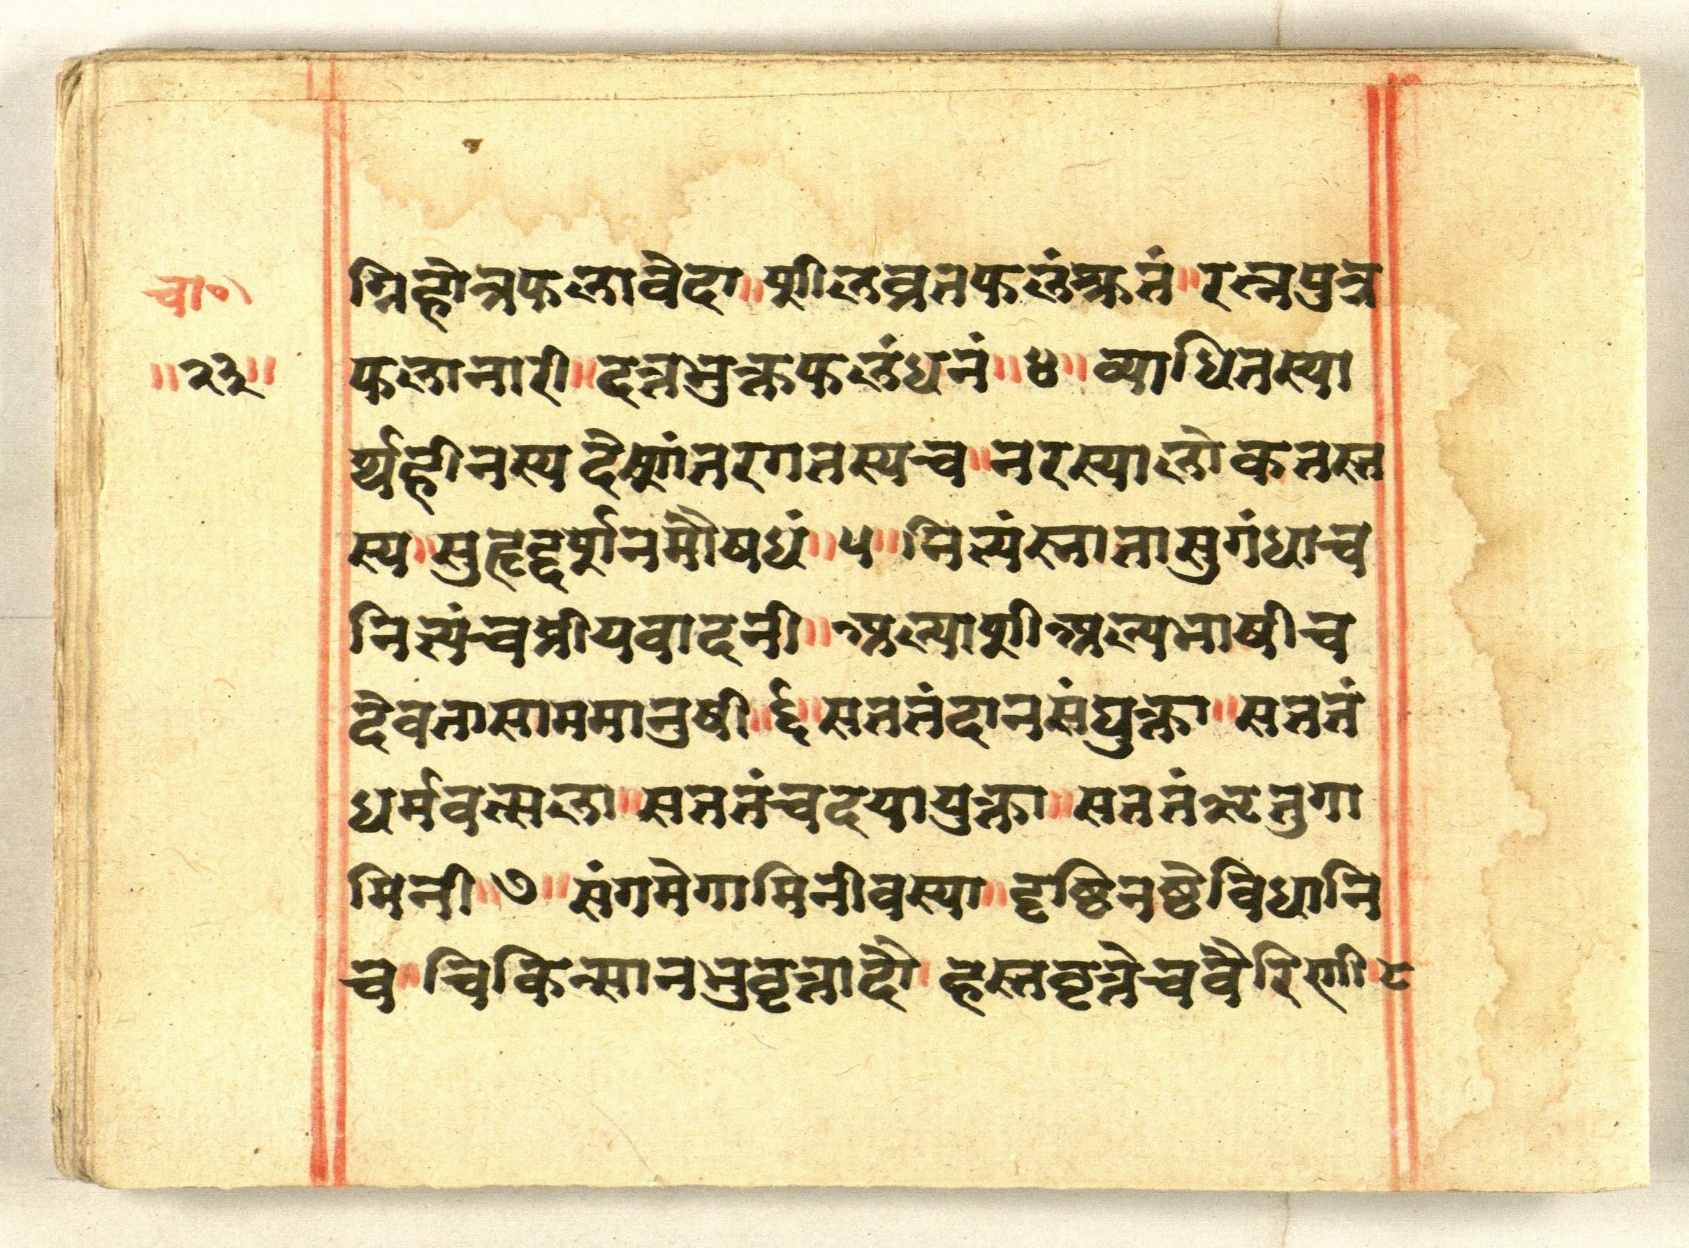 चा॰
॥२३॥
ग्निहोत्रफलावेदा॥शीलव्रतफलंश्रुतं॥रत्नपुत्र
फलानारी॥दत्तभुक्तफलंधनं॥४॥व्याधितस्या
र्थहीनस्यदेशांतरगतस्यच॥नरस्यालोकतस्त
स्य॥सुहृद्दर्शनमौषधं॥५॥नित्यंस्नातासुगंधाच
नित्यंचप्रीयवादनी॥अल्पाशीअल्पभाषीच
देवतासाममानुषी॥६॥सततंदानसंयुक्ता॥सततं
धर्मवत्सला॥सततंचदयायुक्ता॥सततंऋतुगा
मिनी॥७॥संगमेगामिनीवस्या॥दृष्टिनष्टेविधानि
च॥चिकित्सानभुवृत्तादौ॥हस्तवृत्तेचवैरिणी॥८